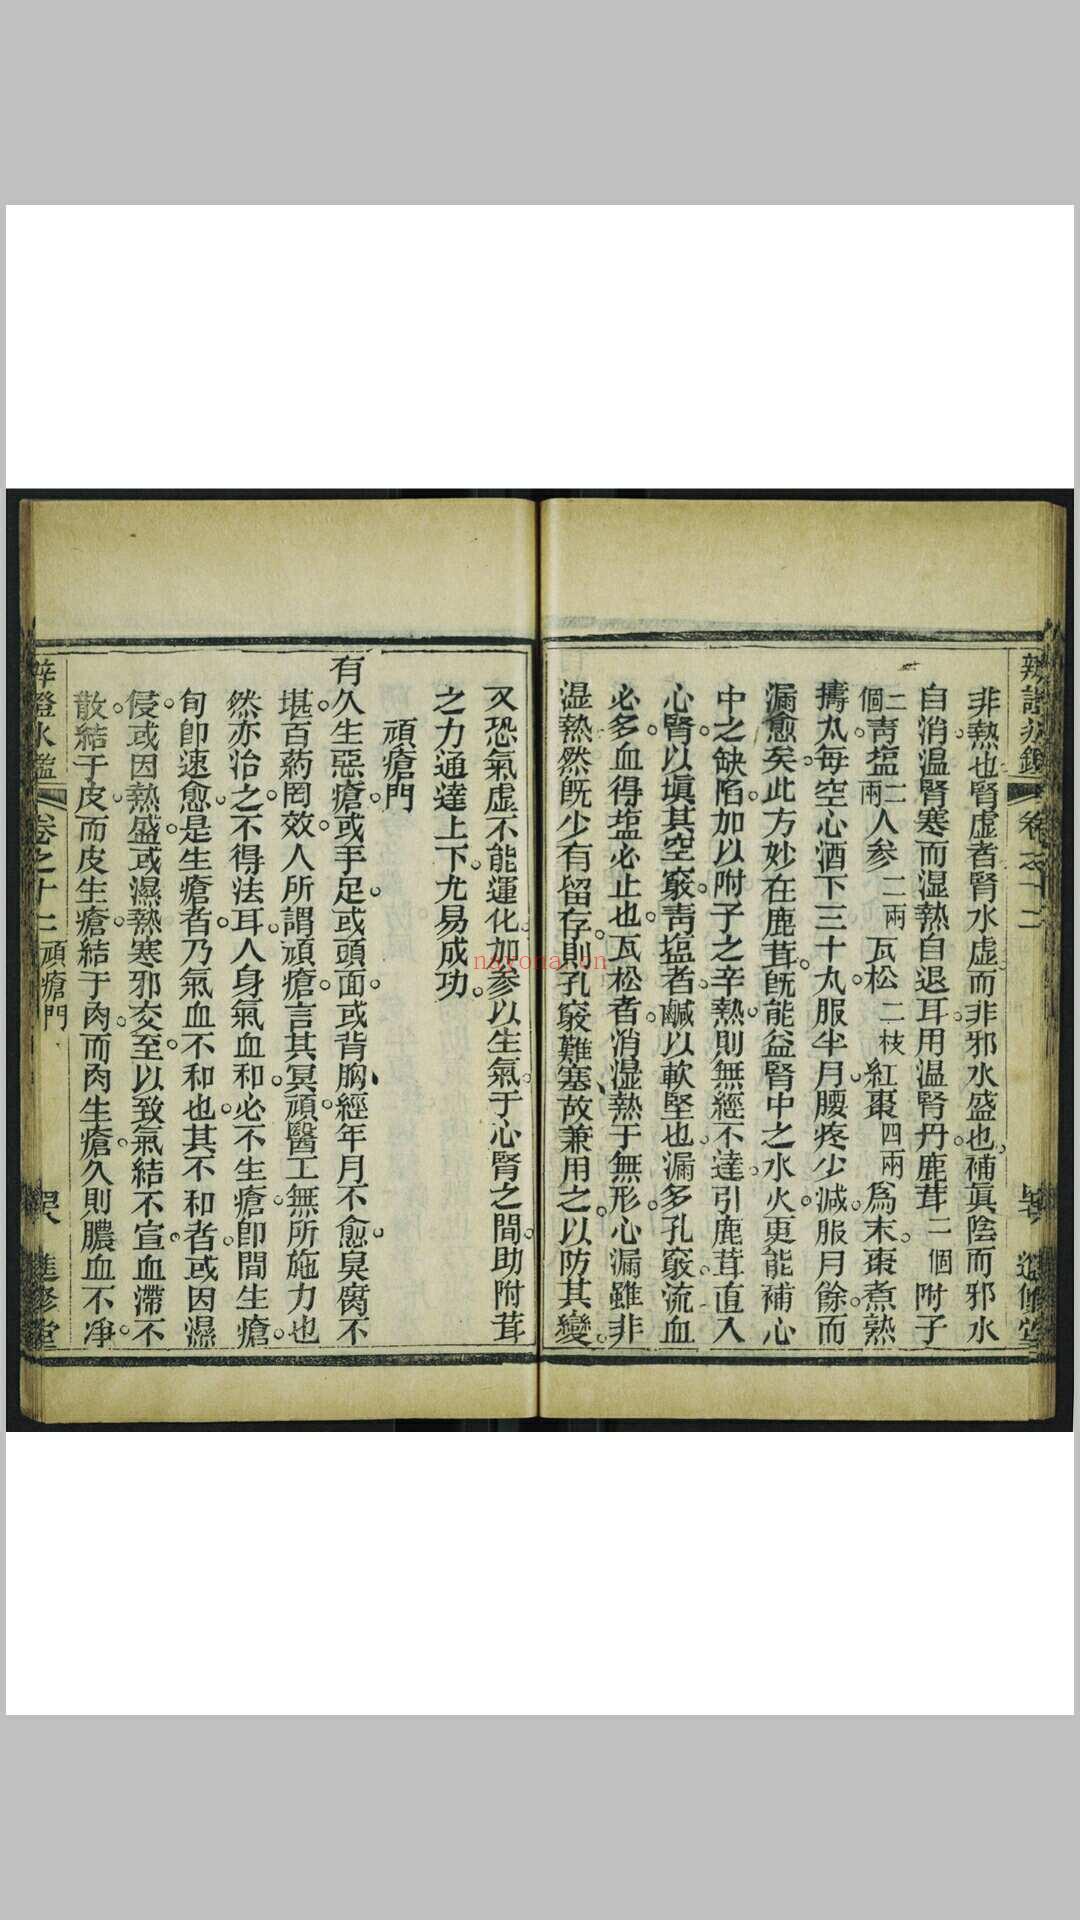 辨證冰鑑 卷之十二 進修堂
非熱也腎虛者腎水虛而非邪水盛也補眞陰而邪水
自消温腎寒而湿熱自退耳用温腎丹鹿茸二個附子
二個靑塩二兩人參二兩瓦松二枝紅棗四兩爲末棗煮熟
擣丸每空心酒下三十丸服半月腰疼少减服月餘而
漏愈矣此方妙在鹿茸旣能益腎中之水火更能補心
中之缺陷加以附子之辛熱則無經不達引鹿茸直入
心腎以塡其空竅靑塩者鹹以軟堅也漏多孔竅流血
必多血得塩必止也瓦松者消湿熱于無形心漏雖非
湿熱然旣少有留存則孔竅難塞故兼用之以防其變
又恐氣虛不能運化加參以生氣于心腎之間助附茸
之力通達上下尤易成功
頑瘡門
有久生惡瘡或手足或頭面或背胸經年月不愈臭腐不
堪百药罔效人所謂頑瘡言其冥頑醫工無所施力也
然亦治之不得法耳人身氣血和必不生瘡卽間生瘡
旬卽速愈是生瘡者乃氣血不和也其不和者或因濕
侵或因熱盛或濕熱寒邪交至以致氣結不宣血滯不
散結于皮而皮生瘡結于肉而肉生瘡久則膿血不凈
辛證冰鑑 卷之十二 頑瘡門 進修堂
nayona.cn